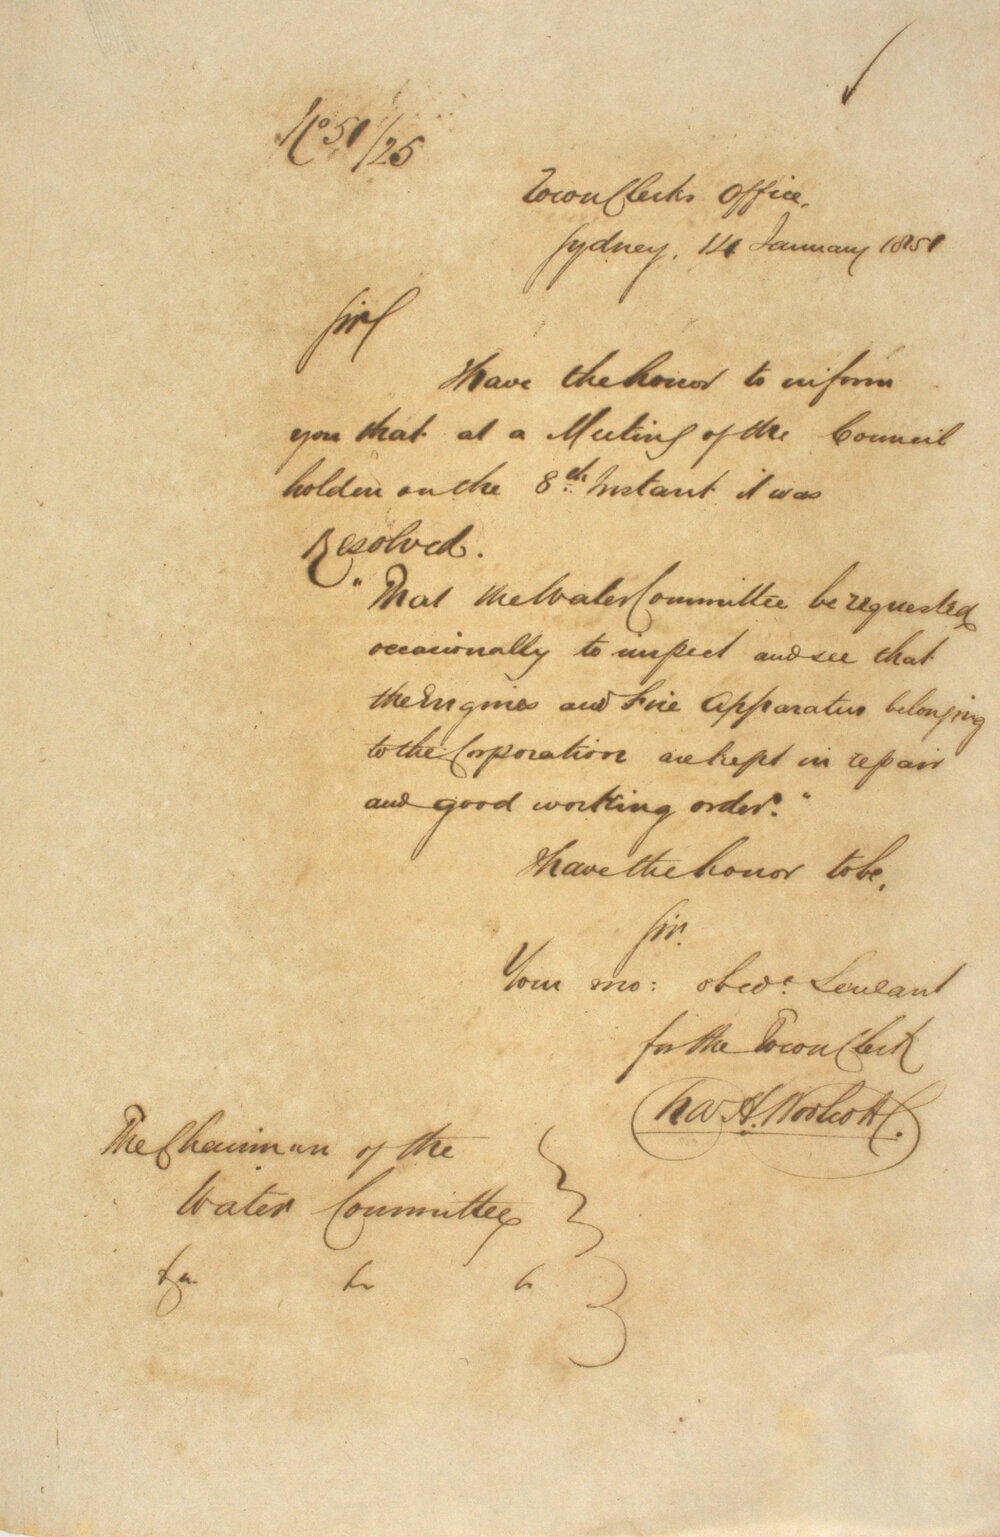 No 51/25
Town Clerks Office,
Sydney, 14 January 1851
Sir
I have the honor to inform
you that at a Meeting of the Council
holden on the 8th Instant it was
Resolved.
"That the Water Committee be requested
occasionally to inspect and see that
the Engines and Fire Apparatus belonging
to the Corporation are kept in repair
and good working order."
I have the honor to be,
Sir.
Your mo: obedt. Servant
for the Town Clerk
Chas H. Woolcott
The Chairman of the
Water Committee
&c &c &c